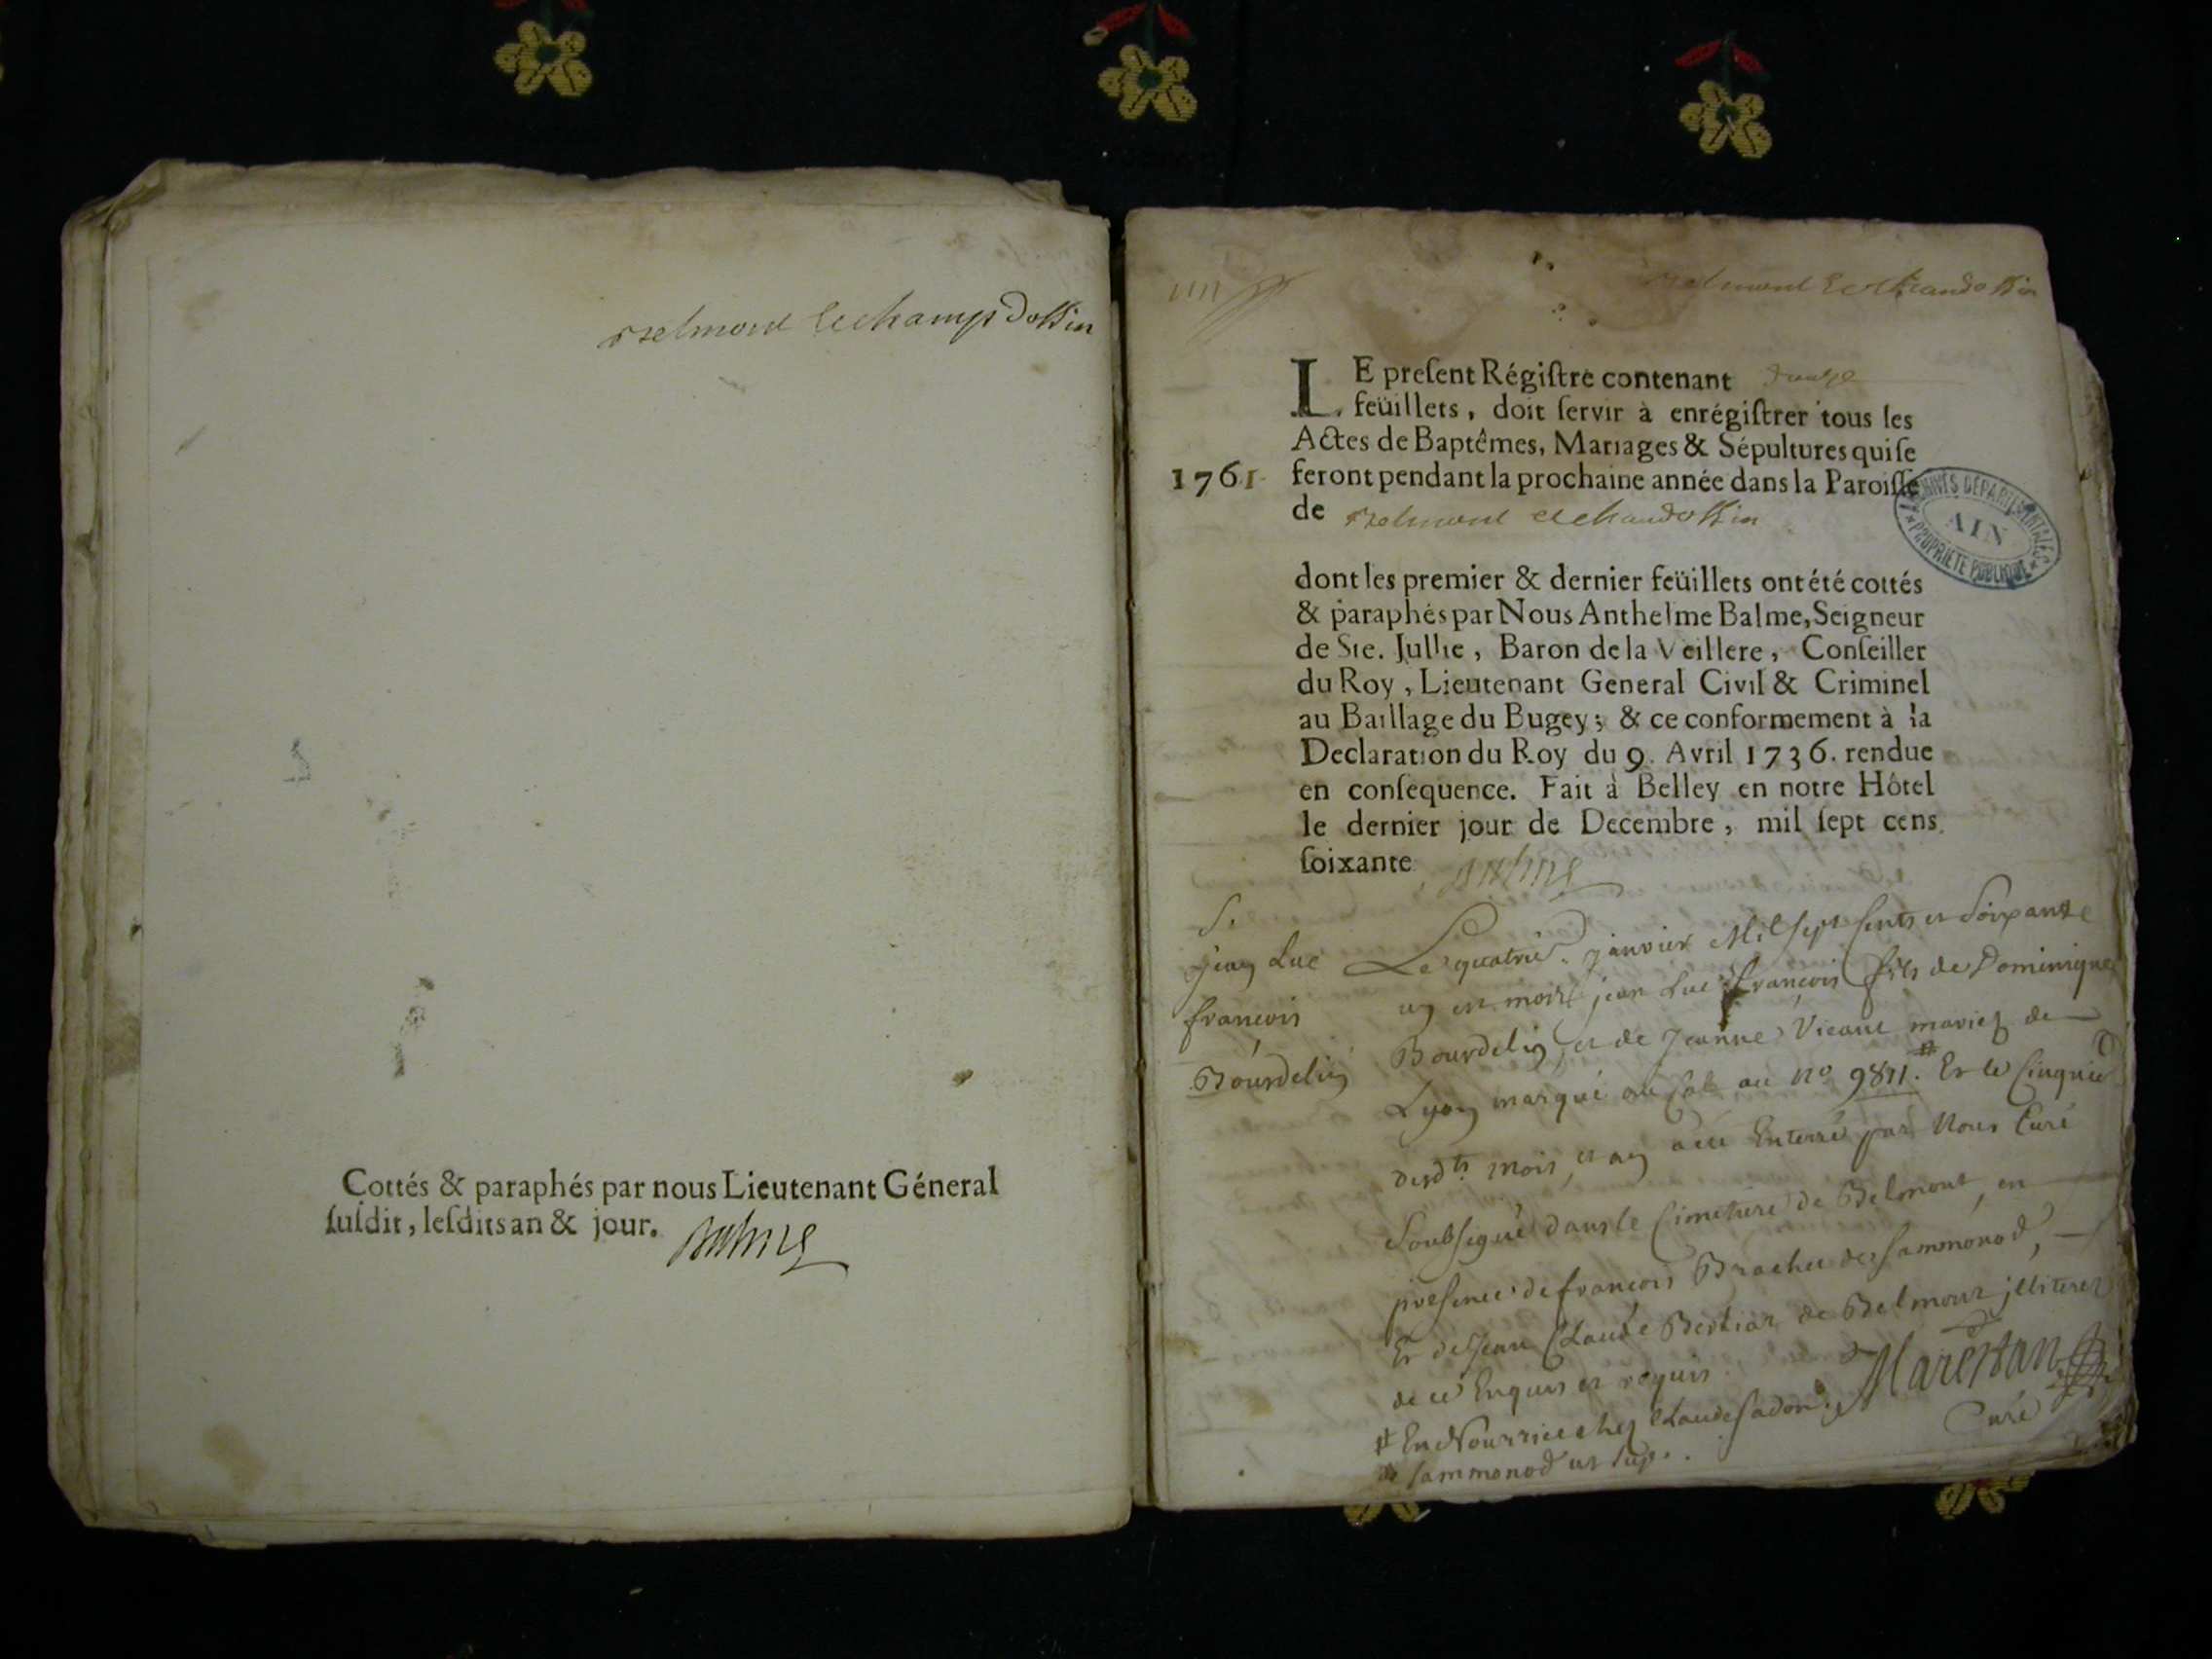 Belmont le champs Dossin
Cottés & paraphés par nous Lieutenant Géneral
ſuſdit, leſdits an & jour.
Balme
Belmont
LE preſent Régiſtre contenant douze
feüillets, doit ſervir à enrégiſtrer tous les
Actes de Baptêmes, Mariages & Sépultures qui ſe
1761 feront pendant la prochaine année dans la Paroiſſe
de Belmont
ARCHIVES DEPARTEMENTALES
AIN
PROPRIETE PUBLIQUE
dont les premier & dernier feüillets ont été cottés
& paraphés par Nous Anthelme Balme, Seigneur
de Ste. Jullie, Baron de la Veillere, Conſeiller
du Roy, Lieutenant General Civil & Criminel
au Baillage du Bugey; & ce conformement à la
Declaration du Roy du 9. Avril 1736. rendue
en conſequence. Fait à Belley en notre Hôtel
le dernier jour de Decembre, mil ſept cens
ſoixante. Balme
S.
jean Luc
françois
Bourdelin
Le quatrie. janvier Mil sept cents et Soixante
un est mort jean Luc françois fils de Dominique
Bourdelin, et de Jeanne Vicant mariez de
Lyon marqué au no 9811. # Et le Cinquie
desdts. mois, et an a eté Enterré par Nous Curé
Soubsigné dans le Cimetiere de Belmont, en
presence de françois Brachet de Sammonod,
Et de Jean Claude Bertier de Belmont jlliterez
de ce Enquis et requis.
Marestan
Curé
# En Nourrice chez Claude
de Sammonod ut sup.